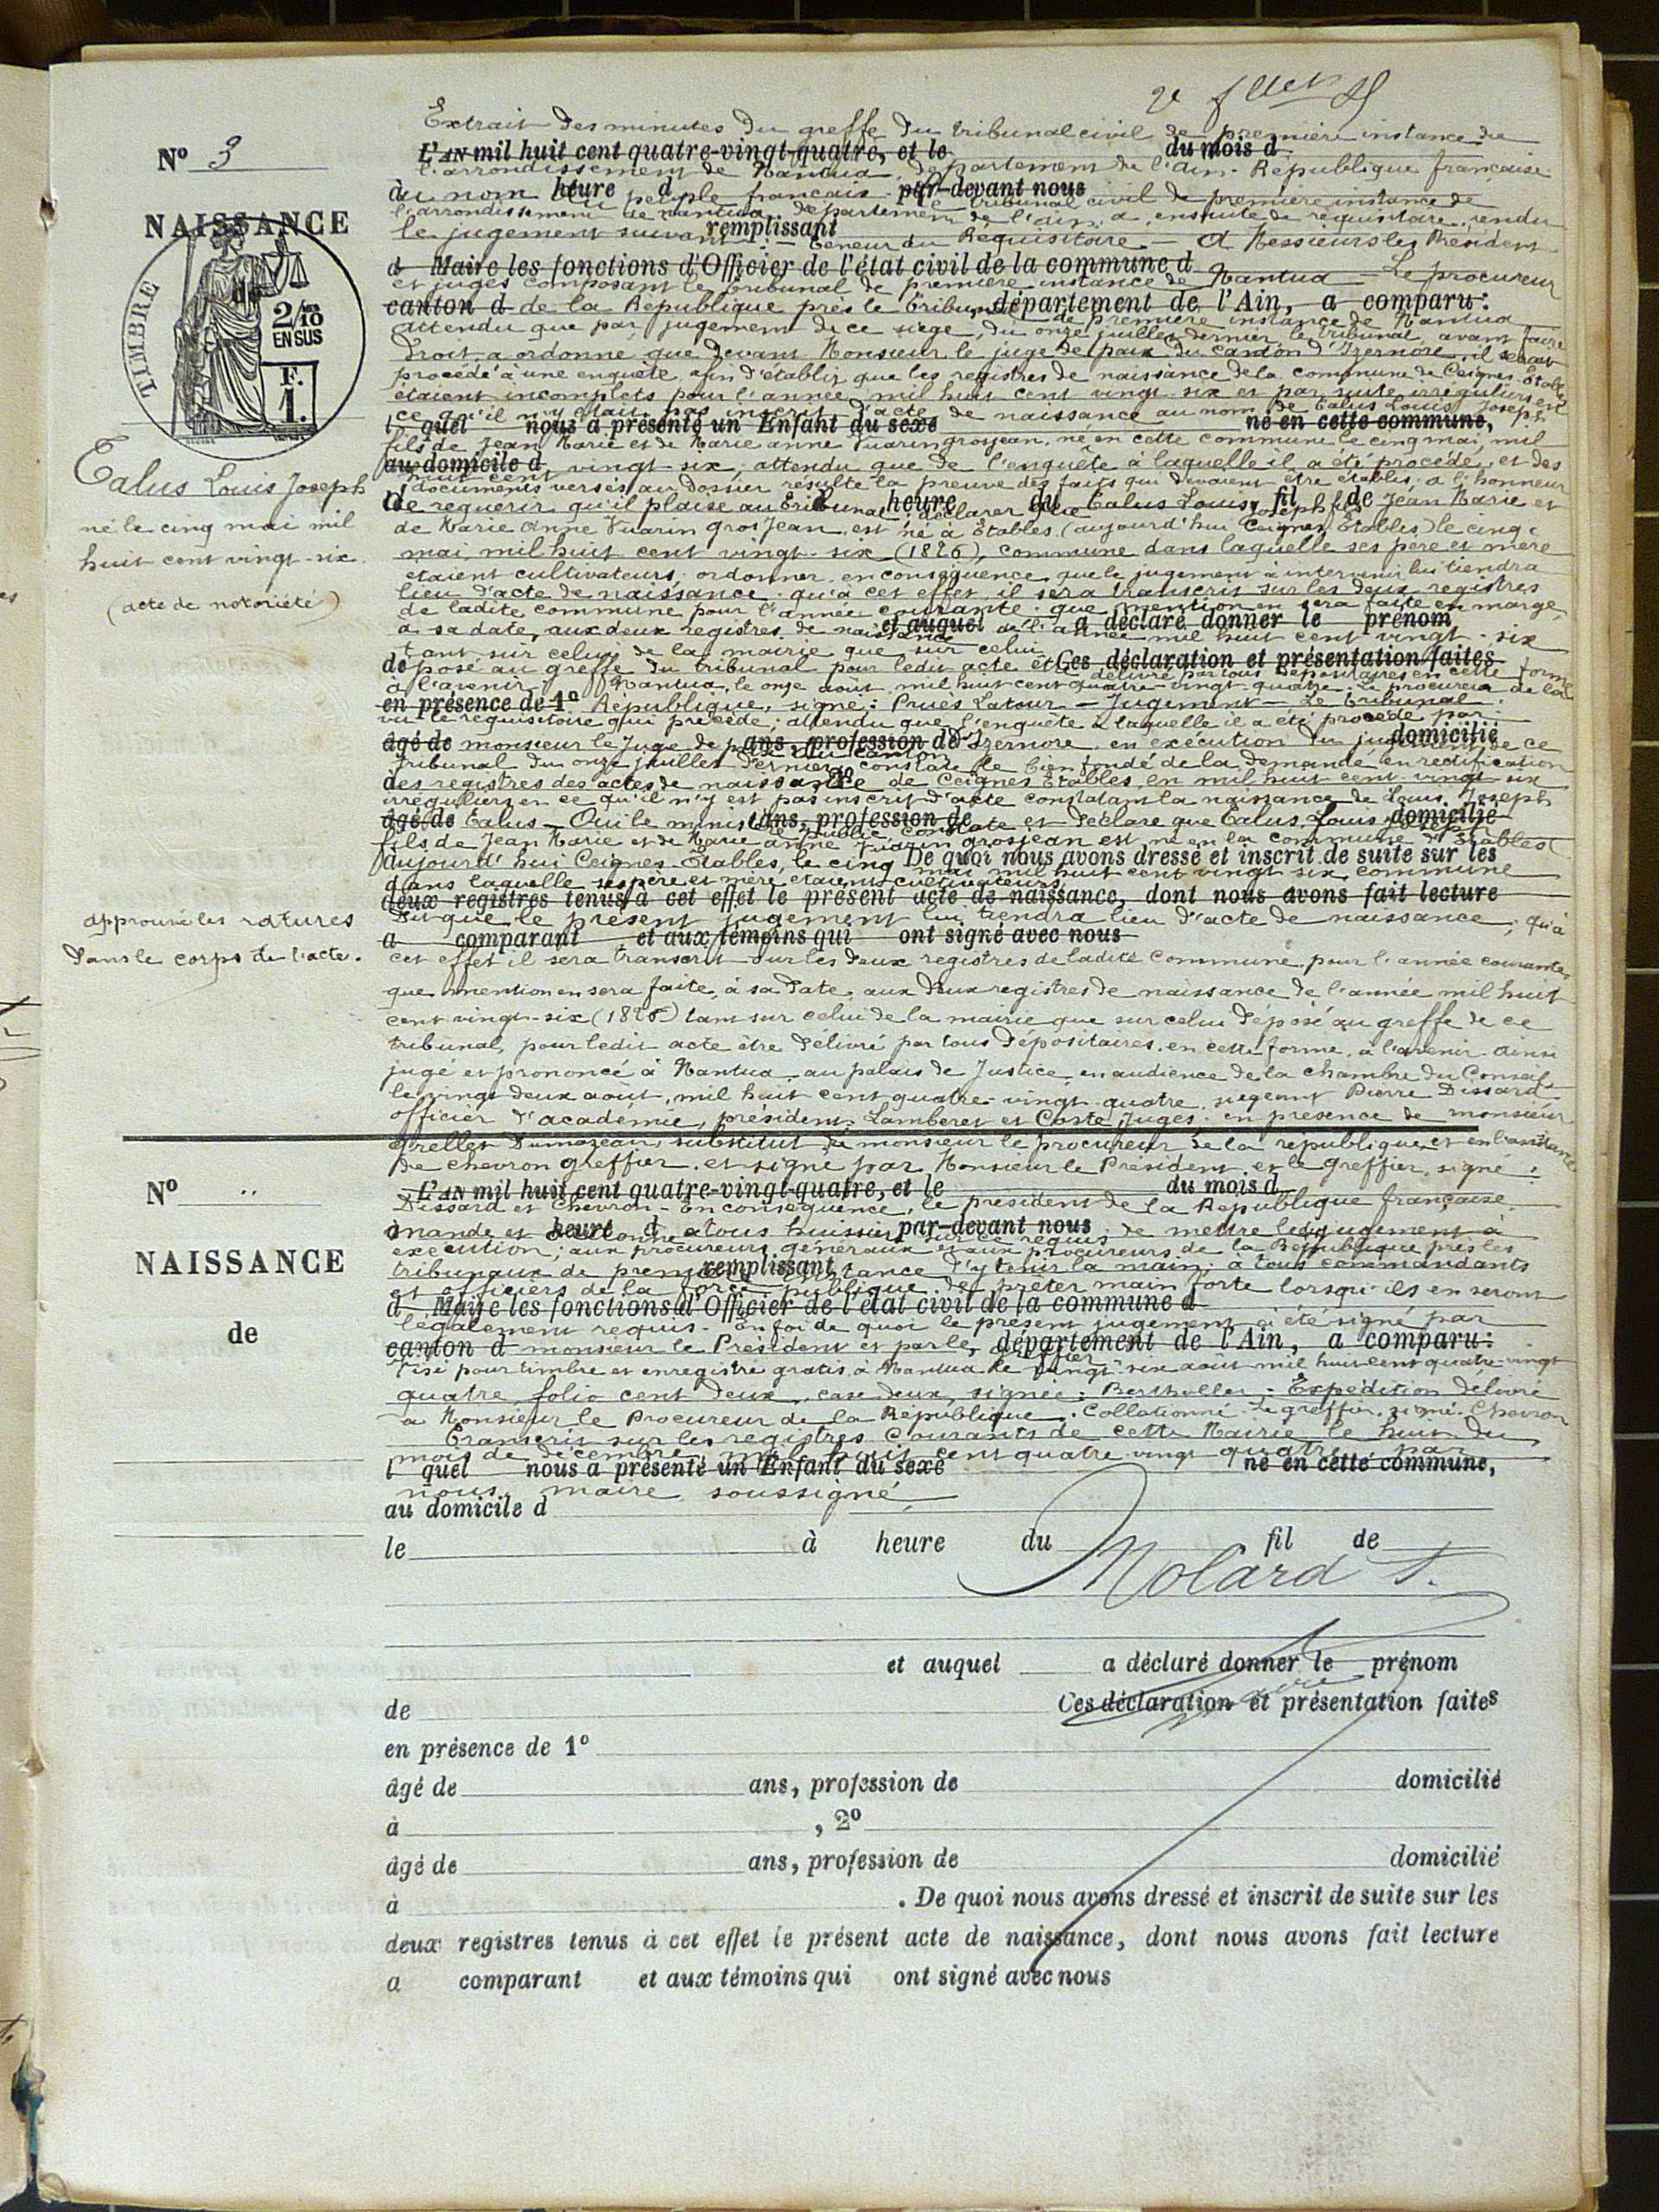 2e
Nº 3
NAISSANCE
de
TIMBRE
2/10
EN SUS
F.
1.
Talus Louis Joseph
né le cinq mai mil
huit cent vingt-six.
(acte de notoriété)
approuvé les ratures
dans le corps de l'acte.
Extrait des minutes du greffe du tribunal civil de première instance de
L'AN mil huit cent quatre-vingt-quatre, et le du mois d
l'arrondissement de Nantua, département de l'Ain. République française
à heure d par-devant nous
au nom du peuple français. le tribunal civil de première instance de
l'arrondissement de Nantua, département de l'Ain, a, ensuite de réquisitoire, rendu
remplissant
le jugement suivant : — Teneur du Réquisitoire — A Messieurs les Président
d Maire les fonctions d'Officier de l'état civil de la commune d
et juges composant le tribunal de première instance de Nantua — Le procureur
canton d département de l'Ain, a comparu :
de la République près le tribunal de première instance de Nantua
attendu que par jugement de ce siège, du onze juillet dernier le tribunal, avant faire
droit, a ordonné que devant Monsieur le juge de paix du canton d'Izernore, il serait
procédé à une enquête afin d'établir que les registres de naissance de la commune de Ceignes-Étables
étaient incomplets pour l'année mil huit cent vingt-six et par suite irréguliers en
ce qu'il n'y était pas inscrit d'acte de naissance au nom de Talus Louis Joseph
l quel nous a présenté un Enfant du sexe né en cette commune,
fils de Jean Marie et de Marie Anne Vuarin grosjean, né en cette commune le cinq mai mil
au domicile d
huit cent vingt-six ; attendu que de l'enquête à laquelle il a été procédé, et des
documents versés au dossier résulte la preuve des faits qui devaient être établis ; a l'honneur
le à heure du fil de
de requérir qu'il plaise au Tribunal : déclarer que Talus Louis Joseph fils de Jean Marie et
de Marie Anne Vuarin grosjean, est né à Étables (aujourd'hui Ceignes Étables) le cinq
mai mil huit cent vingt-six (1826), commune dans laquelle ses père et mère
étaient cultivateurs ; ordonner en conséquence que le jugement à intervenir lui tiendra
lieu d'acte de naissance. qu'à cet effet il sera transcrit sur les deux registres
de ladite commune pour l'année courante. que mention en sera faite en marge,
et auquel a déclaré donner le prénom
à sa date, aux deux registres de naissance de l'année mil huit cent vingt-six
tant sur celui de la mairie que sur celui
de Ces déclaration et présentation faites
déposé au greffe du tribunal pour ledit acte être délivré par tous dépositaires en cette forme
à l'avenir. Nantua, le onze août mil huit cent quatre-vingt-quatre. Le procureur de la
en présence de 1º
République, signé : Prues Latour — Jugement — Le Tribunal.
vu le réquisitoire qui précède ; attendu que l'enquête à laquelle il a été procédé par
âgé de ans, profession de domicilié
monsieur le Juge de paix du canton d'Izernore en exécution du jugement de ce
tribunal du onze juillet dernier constate le bien fondé de la demande en rectification
2º
des registres des actes de naissance de Ceignes Étables, en mil huit cent vingt-six
irréguliers en ce qu'il n'y est pas inscrit d'acte constatant la naissance de Louis Joseph
âgé de ans, profession de domicilié
Talus — Ouï le ministère public constate et déclare que Talus Louis Joseph
fils de Jean Marie et de Marie Anne Vuarin grosjean est né en la commune d'Étables (
De quoi nous avons dressé et inscrit de suite sur les
aujourd'hui Ceignes-Étables, le cinq mai mil huit cent vingt six, commune
dans laquelle ses père et mère étaient cultivateurs,
deux registres tenus à cet effet le présent acte de naissance, dont nous avons fait lecture
dit que le présent jugement lui tiendra lieu d'acte de naissance ; qu'à
a comparant et aux témoins qui ont signé avec nous
cet effet il sera transcrit sur les deux registres de ladite Commune pour l'année courante,
que mention en sera faite, à sa date, aux deux registres de naissance de l'année mil huit
cent vingt-six (1826) tant sur celui de la mairie que sur celui déposé au greffe de ce
tribunal, pour ledit acte être délivré par tous dépositaires, en cette forme, à l'avenir. Ainsi
jugé et prononcé à Nantua au palais de Justice en audience de la chambre du Conseil
le vingt deux août, mil huit cent quatre-vingt-quatre, siégeant Pierre Dissard
officier d'académie, président, Lamberet et Coste Juges, en présence de monsieur
grellet Dumazeau, substitut de monsieur le procureur de la république et en l'assistance
de Chevron greffier. et signé par Monsieur le Président et le greffier. signé :
Nº ..
NAISSANCE
de
L'AN mil huit cent quatre-vingt-quatre, et le du mois d
Dissard et Chevron — En conséquence, le président de la République française
à heure d par-devant nous
mande et ordonne à tous huissiers sur ce requis de mettre ledit jugement à
exécution ; aux procureurs généraux et aux procureurs de la République près les
remplissant
tribunaux de première instance d'y tenir la main ; à tous commandants
et officiers de la force publique de prêter main forte lorsqu'ils en seront
d Maire les fonctions d'Officier de l'état civil de la commune d
légalement requis. En foi de quoi le présent jugement a été signé par
canton d département de l'Ain, a comparu :
monsieur le Président et par le greffier
Visé pour timbre et enregistré gratis à Nantua le vingt-six août mil huit cent quatre-vingt
quatre folio cent deux, case deux, signée : Berthollet. Expédition délivré
à Monsieur le Procureur de la République. Collationné. Le greffier. signé. Chevron
Transcrit sur les registres courants de cette Mairie le huit du
mois de décembre mil huit cent quatre vingt quatre par
l quel nous a présenté un Enfant du sexe né en cette commune,
nous, maire soussigné,
au domicile d
le à heure du fil de
Molard
et auquel a déclaré donner le prénom
de Ces déclaration et présentation faites
en présence de 1º
âgé de ans, profession de domicilié
à , 2º
âgé de ans, profession de domicilié
à . De quoi nous avons dressé et inscrit de suite sur les
deux registres tenus à cet effet le présent acte de naissance, dont nous avons fait lecture
a comparant et aux témoins qui ont signé avec nous